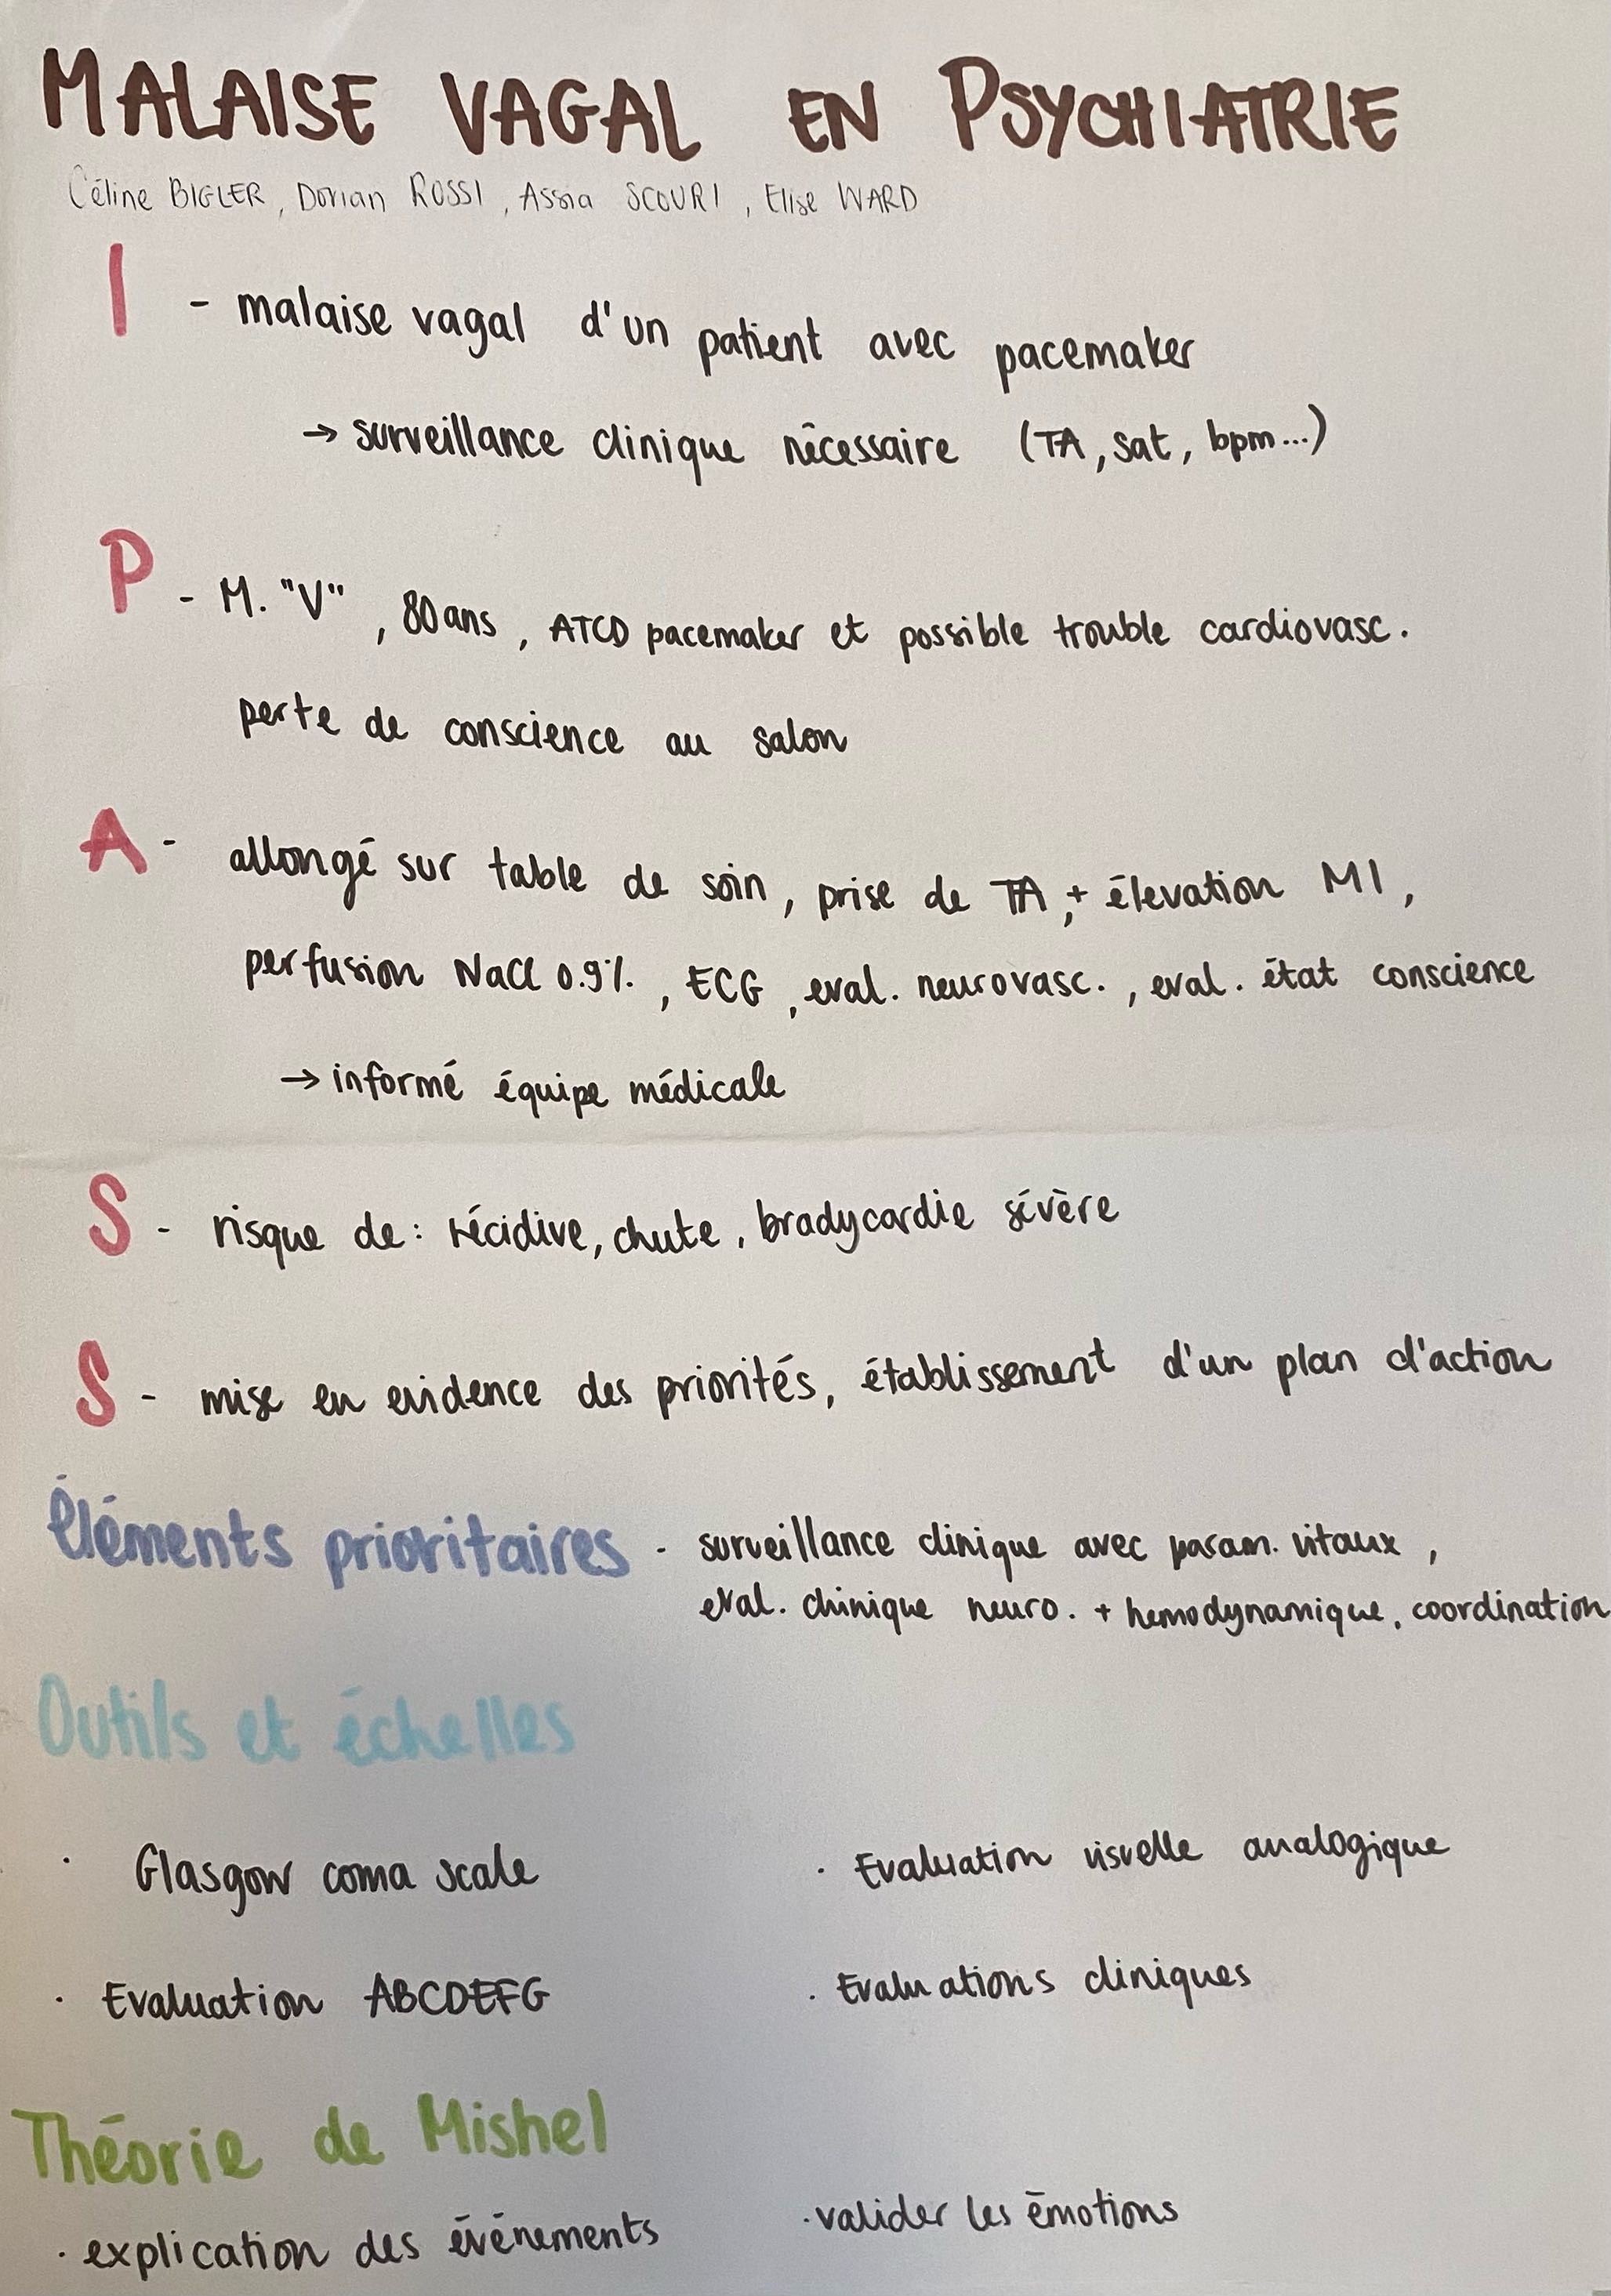 MALAISE VAGAL EN PSYCHIATRIE
Céline BIGLER, Dorian ROSSI, Assia SCOURI, Elise WARD
I - malaise vagal d'un patient avec pacemaker
→ surveillance clinique nécessaire (TA, sat, bpm...)
P - M. "V", 80 ans, ATCD pacemaker et possible trouble cardiovasc.
perte de conscience au salon
A - allongé sur table de soin, prise de TA, + élevation MI,
perfusion NaCl 0.9%, ECG, eval. neurovasc., eval. état conscience
→ informé équipe médicale
S - risque de: récidive, chute, bradycardie sévère
S - mise en evidence des priorités, établissement d'un plan d'action
Éléments prioritaires - surveillance clinique avec param. vitaux,
eval. chinique neuro. + hemodynamique, coordination
Outils et échelles
· Glasgow coma scale
· Evaluation visuelle analogique
· Evaluation ABCDEFG
· Evaluations cliniques
Théorie de Mishel
· explication des événements
· valider les émotions